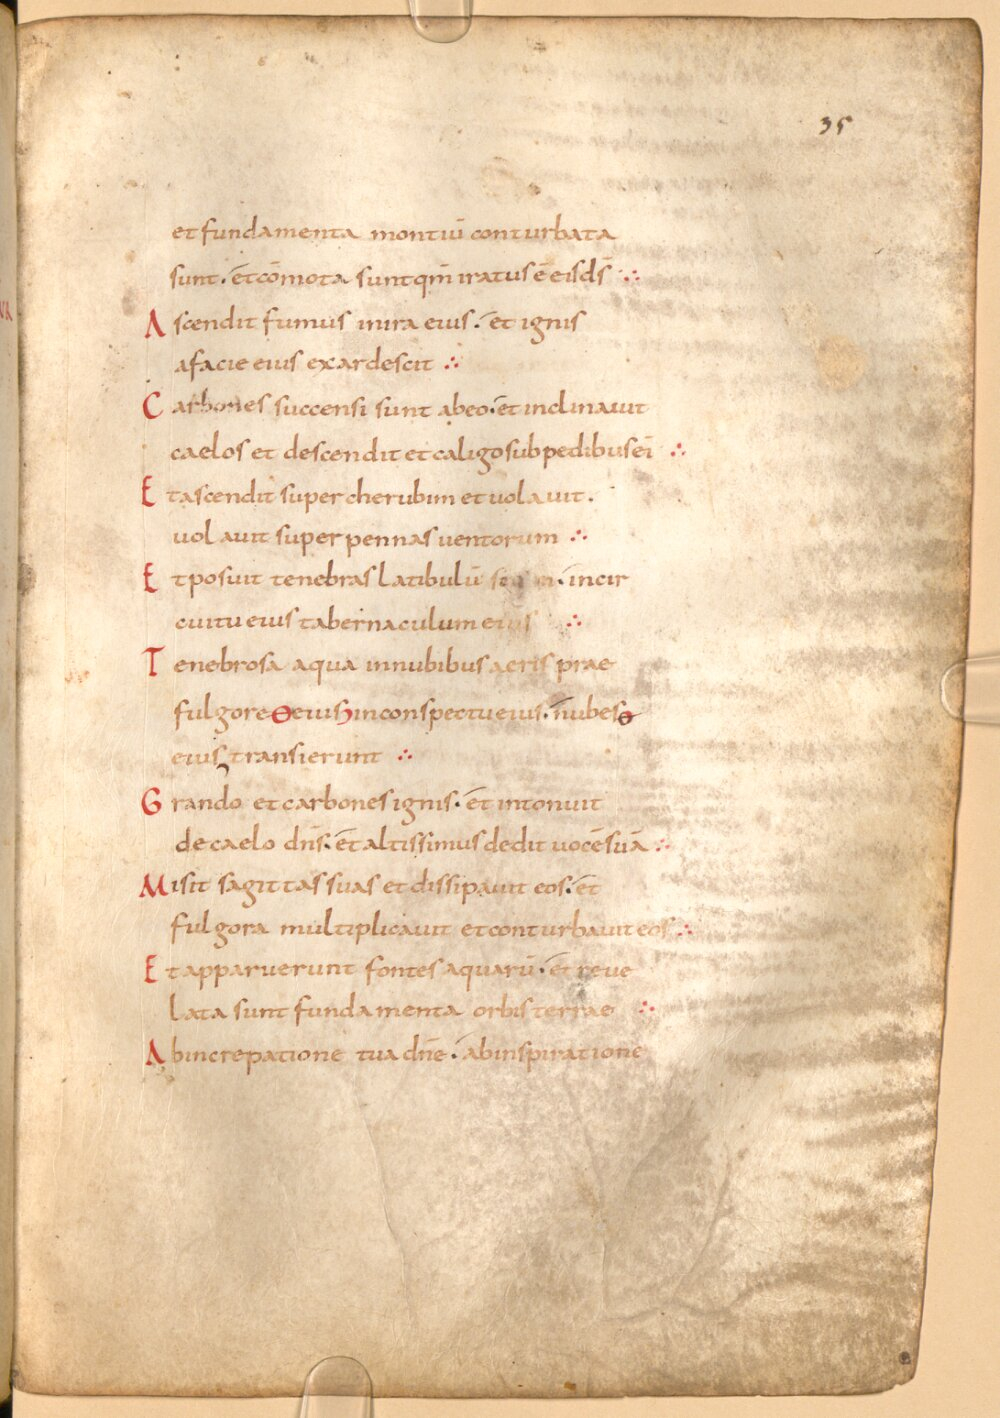 35
et fundamenta montiū conturbata
sunt· et cōmota sunt qm̄ iratus ē eis ds̄ ∴
Ascendit fumus in ira eius· et ignis
a facie eius exardescit ∴
Carbones succensi sunt ab eo· et inclinauit
caelos et descendit et caligo sub pedibus ei ∴
Et ascendit super cherubim et uolauit·
uolauit super pennas uentorum ∴
Et posuit tenebras latibulū · in cir
cuitu eius tabernaculum eius ∴
Tenebrosa aqua in nubibus aeris prae
fulgore eius in conspectu eius· nubes
eius transierunt ∴
Grando et carbones ignis· et intonuit
de caelo dn̄s· et altissimus dedit uocē suā ∴
Misit sagittas suas et dissipauit eos· et
fulgora multiplicauit et conturbauit eos ∴
Et apparuerunt fontes aquarū· et reue
lata sunt fundamenta orbis terrae ∴
Ab increpatione tua dn̄e· ab inspiratione